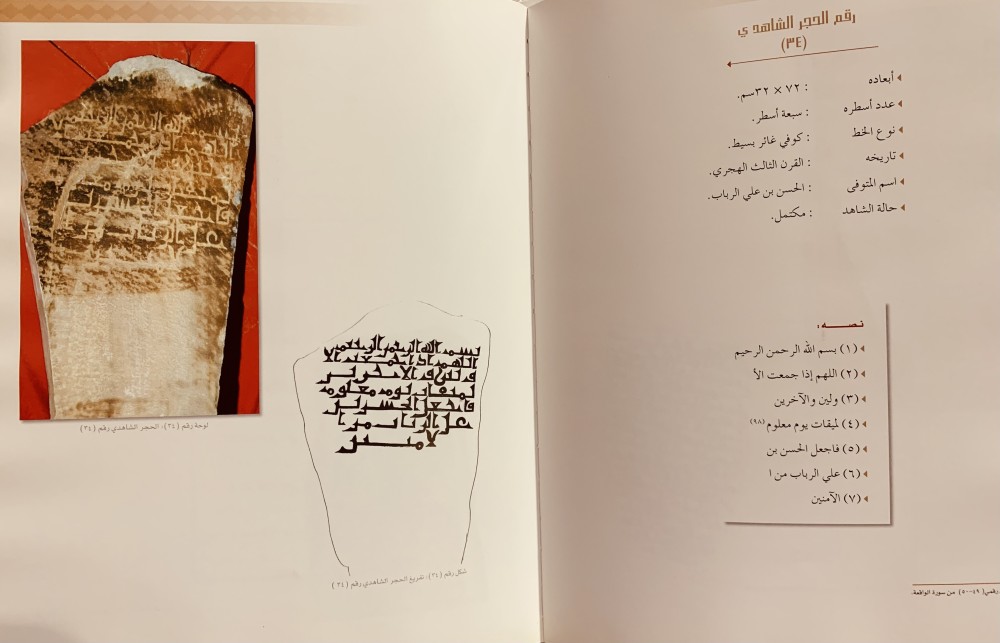 رقم الحجر الشاهدي
(٣٤)
أبعاده : ٧٢ × ٣٢سم.
عدد أسطره : سبعة أسطر.
نوع الخط : كوفي غائر بسيط.
تاريخه : القرن الثالث الهجري.
اسم المتوفى : الحسن بن علي الرباب.
حالة الشاهد : مكتمل.
نصـــه :
(١) بسم الله الرحمن الرحيم
(٢) اللهم إذا جمعت الأ
(٣) ولين والآخرين
(٤) لميقات يوم معلوم(٩٨)
(٥) فاجعل الحسن بن
(٦) علي الرباب من ا
(٧) الآمنين
رقمي (٤٩-٥٠) من سورة الواقعة.
لوحة رقم (٣٤): الحجر الشاهدي رقم (٣٤)
بسم الله الرحمن الرحيم
اللهم اذا جمعت الا
ولين والاخرين
لميقات يوم معلوم
فاجعل الحسن بن
على الرباب من ا
لامنين
شكل رقم (٣٤): تفريغ الحجر الشاهدي رقم (٣٤)